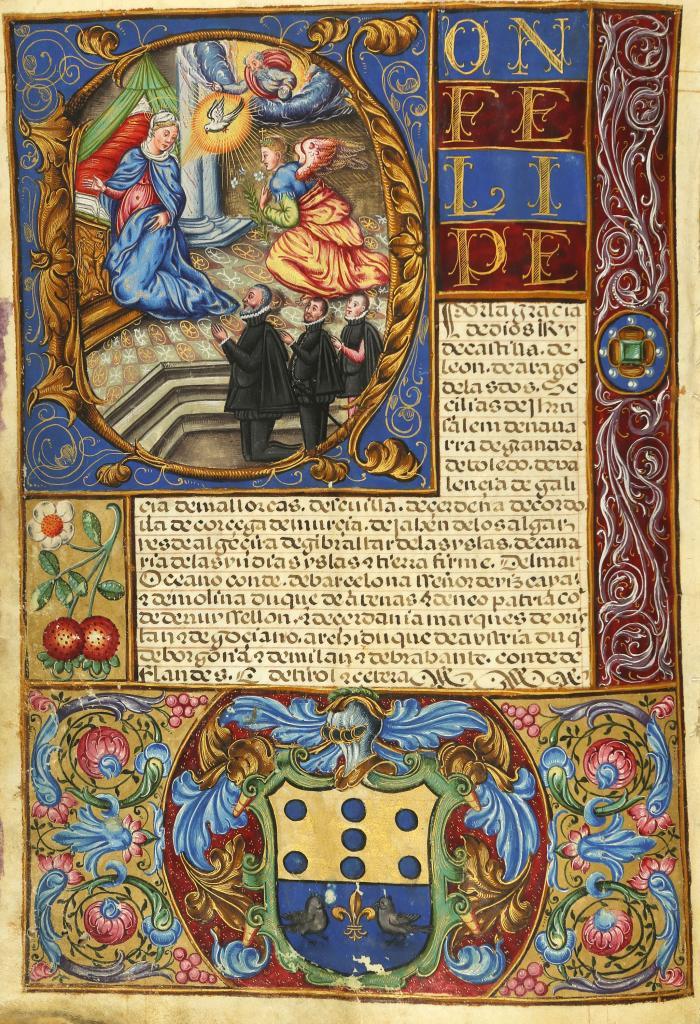 D
ON
FE
LI
PE
porla gracia
de dios Rey
de castilla. de
leon. de arago
delas dos. Se
cilias de Jhru
salem de nava
rra de granada
de toledo. de va
lencia de gali
cia de mallorcas. de sevilla. de çerdeña de cordo
va de corcega de murçia. de jahen delos algar
ves de algezira de gibraltar delas yslas. de cana
ria delas yndias yslas & tierra firme. Del mar
Oceano conde. de barcelona señor de vizcaya.
& de molina duque de atenas & de neopatria co
de de ruysellon. & de cerdania marques de oris
tan & de goçiano. archiduque de avstria duq̃
de borgoña & de milan & de brabante. conde de
flandes. de tirol & cetera